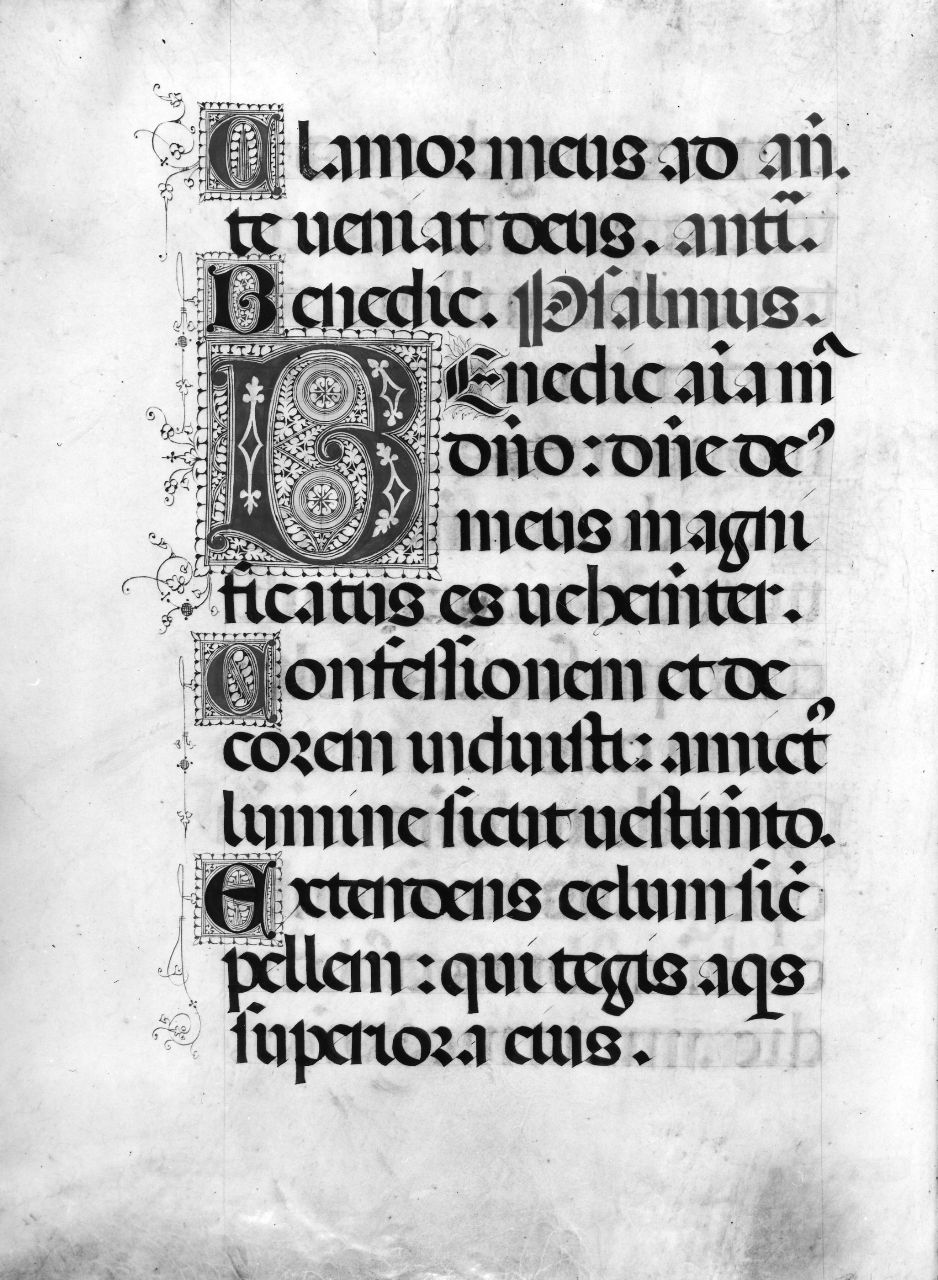 Clamor meus ad añ.
te ueniat deus. antĩ.
Benedic. Psalmus.
BEnedic aīa m̄
dño: dñe de⁹
meus magni
ficatus es uehem̄ter.
Confessionem et de
corem induisti: amict⁹
lumine sicut uestim̄to.
Extendens celum sic̄
pellem: qui tegis aqs
superiora eius.